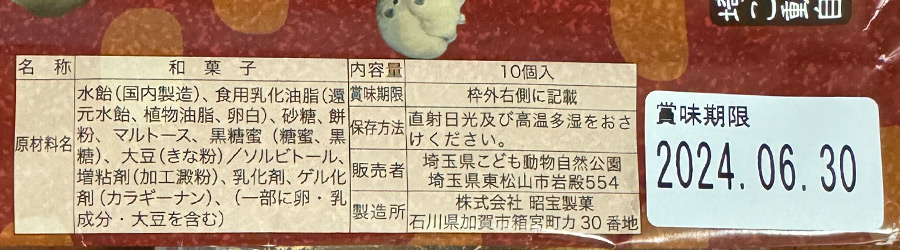 名称 和菓子
原材料名
水飴(国内製造)、食用乳化油脂(還
元水飴、植物油脂、卵白)、砂糖、餅
粉、マルトース、黒糖蜜(糖蜜、黒
糖)、大豆(きな粉)/ソルビトール、
増粘剤(加工澱粉)、乳化剤、ゲル化
剤(カラギーナン)、(一部に卵・乳
成分・大豆を含む)
内容量 10個入
賞味期限 枠外右側に記載
保存方法 直射日光及び高温多湿をおさ
けください。
販売者 埼玉県こども動物自然公園
埼玉県東松山市岩殿554
製造所 株式会社 昭宝製菓
石川県加賀市箱宮町カ30番地
賞味期限
2024.06.30